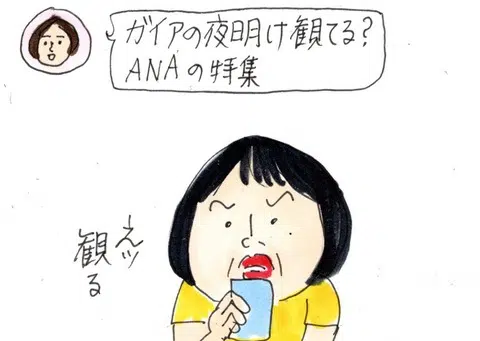 ガイアの夜明け観てる？
ANAの特集
えッ
観る